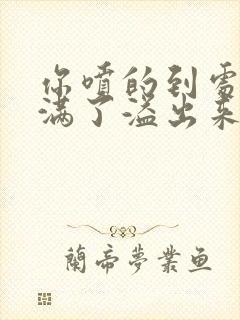 你喷的到处
满了溢出来
蘭帝梦業鱼